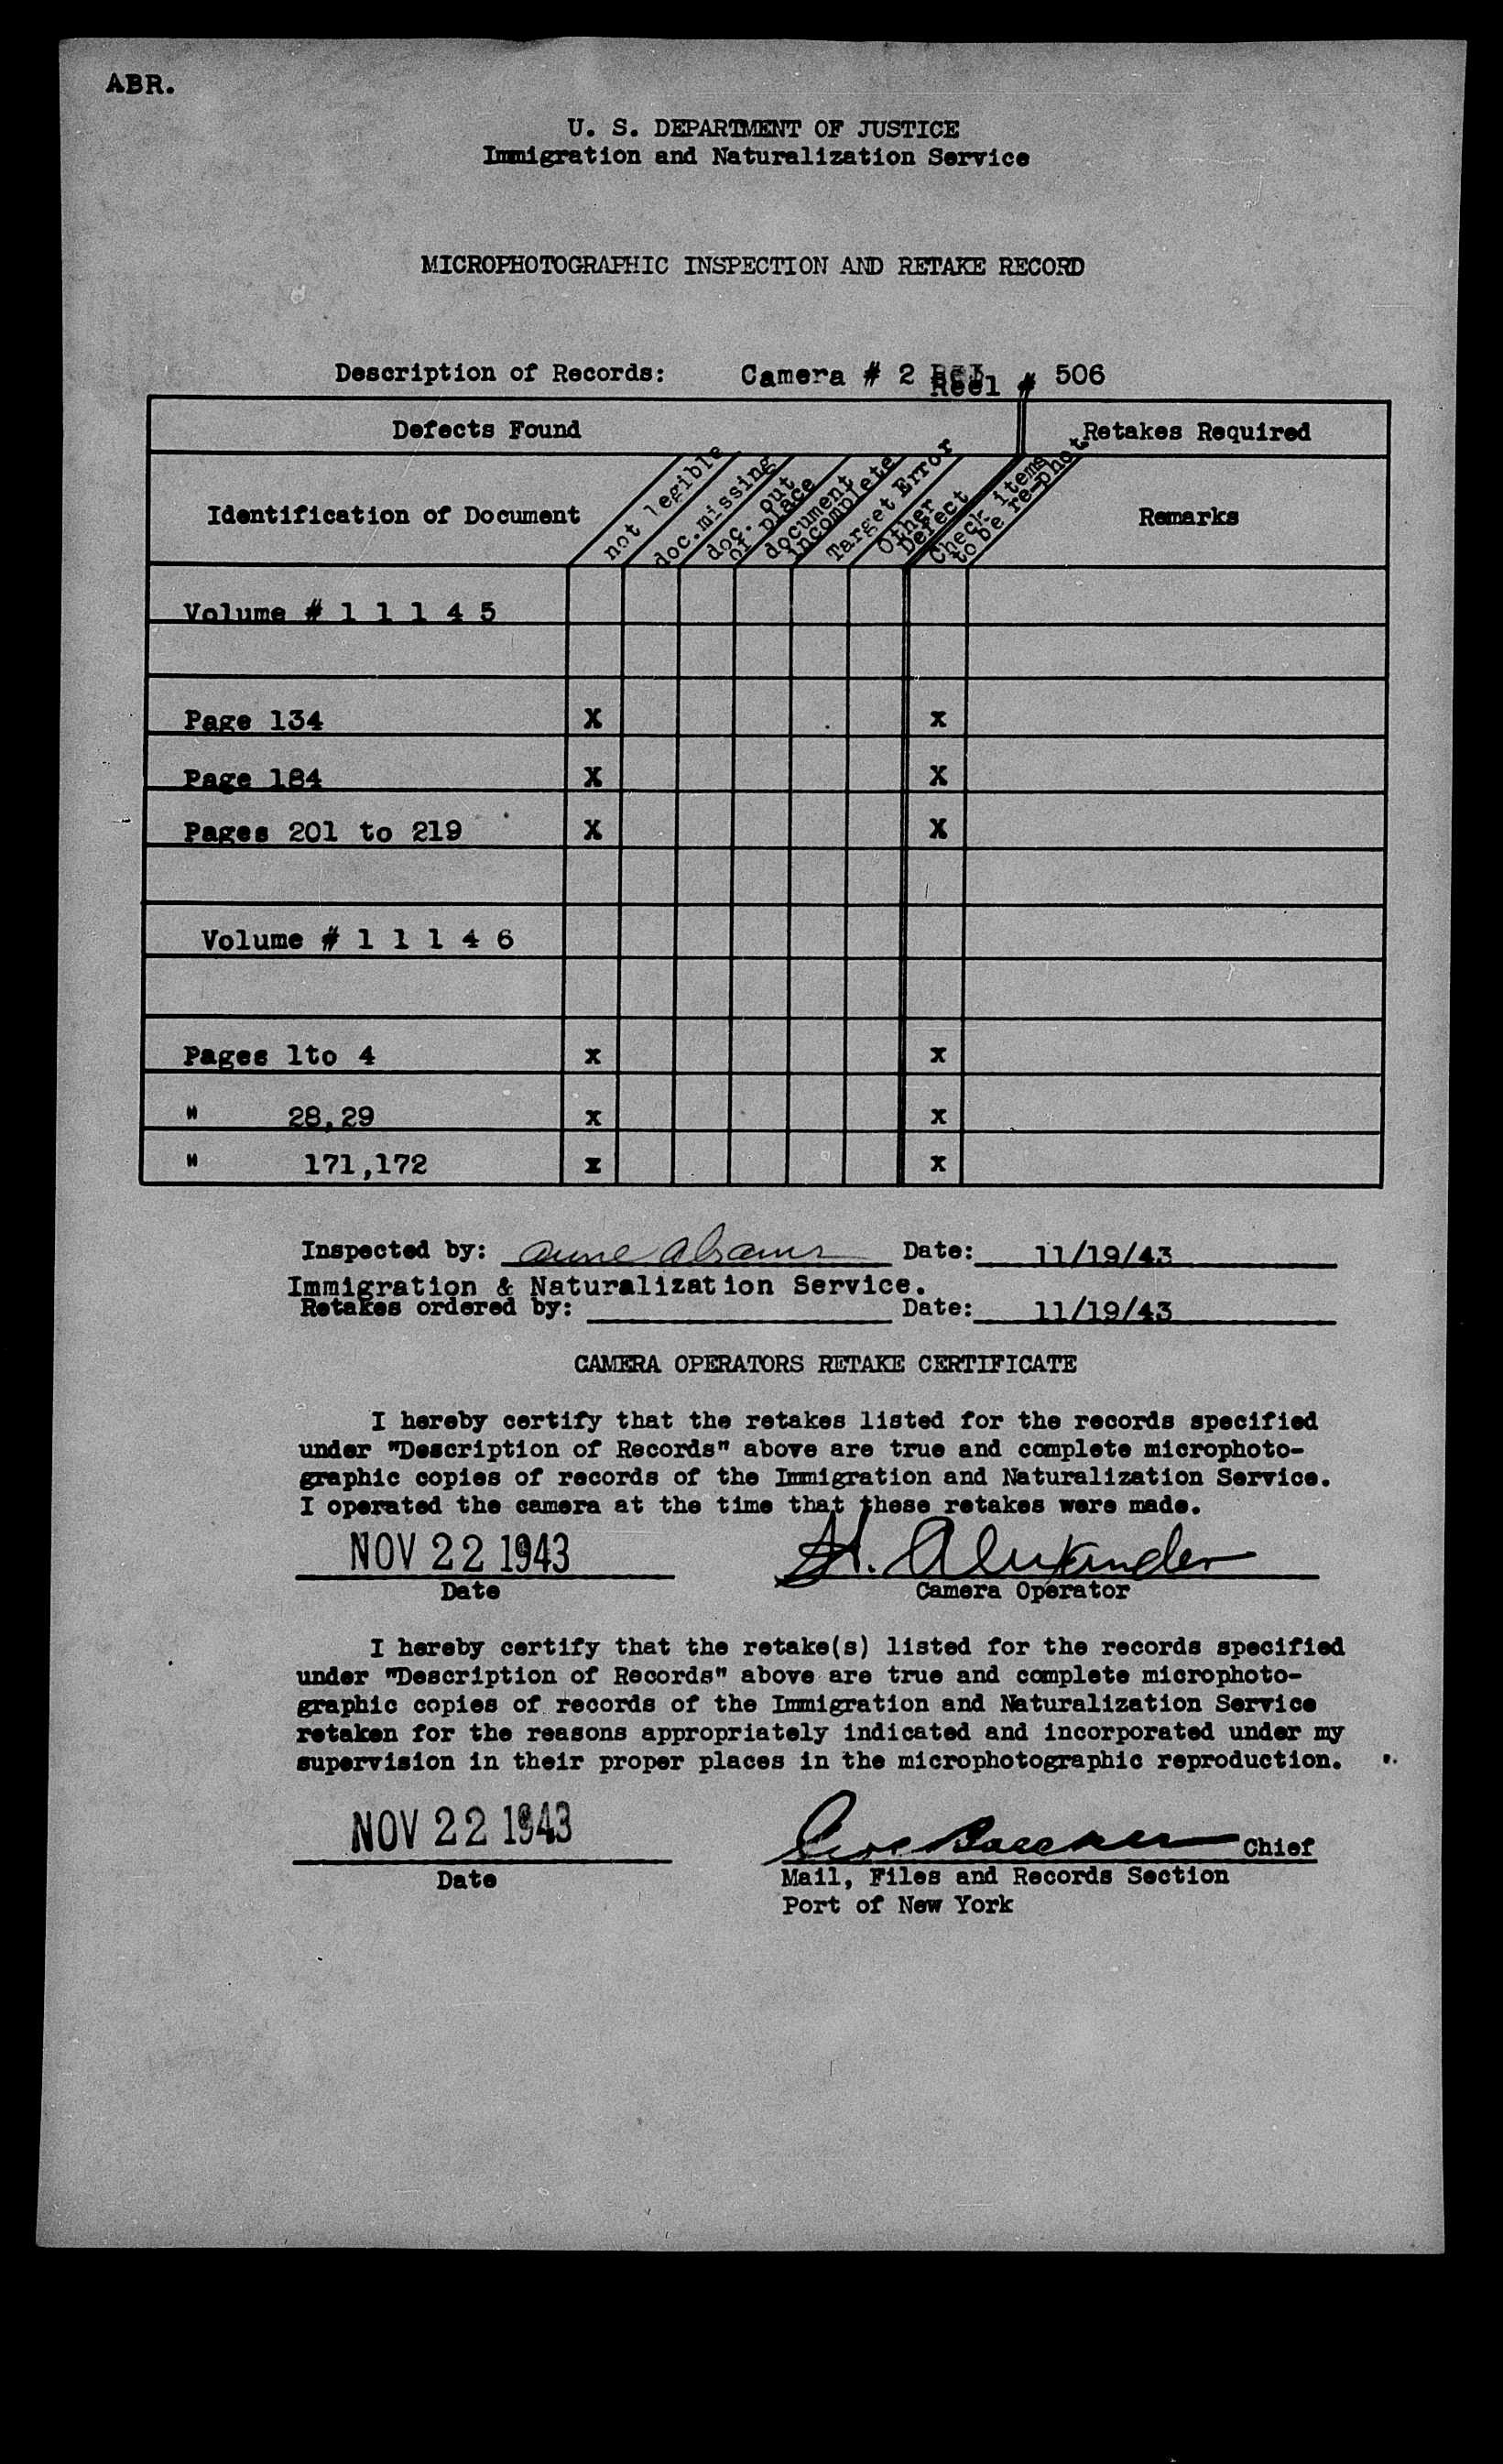 ABR.
U. S. DEPARTMENT OF JUSTICE
Immigration and Naturalization Service
MICROPHOTOGRAPHIC INSPECTION AND RETAKE RECORD
Description of Records: Camera # 2 Reel # 506
Defects Found Retakes Required
Identification of Document not legible doc.missing doc. out of place document incomplete Target Error Other Defect Check items to be re-phot. Remarks
Volume # 1 1 1 4 5
Page 134 X x
Page 184 X X
Pages 201 to 219 X X
Volume # 1 1 1 4 6
Pages 1to 4 x x
" 28,29 x x
" 171,172 x x
Inspected by: Anne Abrams Date: 11/19/43
Immigration & Naturalization Service.
Retakes ordered by: Date: 11/19/43
CAMERA OPERATORS RETAKE CERTIFICATE
I hereby certify that the retakes listed for the records specified
under "Description of Records" above are true and complete microphoto-
graphic copies of records of the Immigration and Naturalization Service.
I operated the camera at the time that these retakes were made.
NOV 22 1943 H. Alexander
Date Camera Operator
I hereby certify that the retake(s) listed for the records specified
under "Description of Records" above are true and complete microphoto-
graphic copies of records of the Immigration and Naturalization Service
retaken for the reasons appropriately indicated and incorporated under my
supervision in their proper places in the microphotographic reproduction.
NOV 22 1943 Chief
Date Mail, Files and Records Section
Port of New York